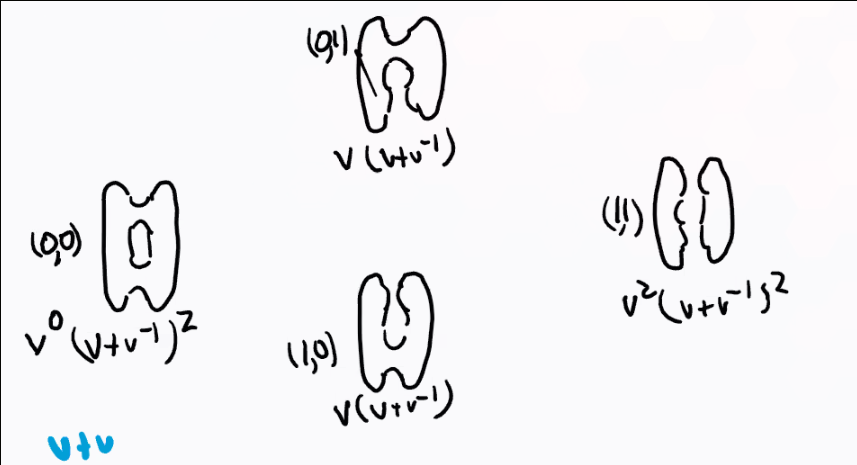 (0,1)
v(v+v⁻¹)
(0,0)
v⁰(v+v⁻¹)²
(1,1)
v²(v+v⁻¹)²
(1,0)
v(v+v⁻¹)
v+v